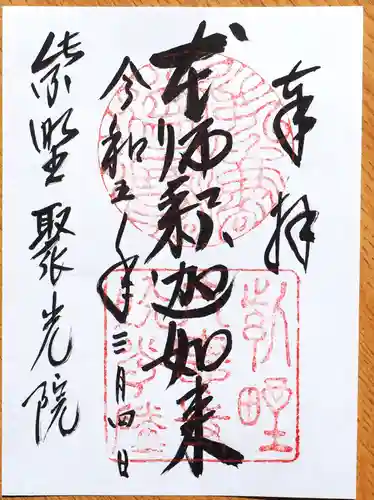 奉拝
本師釈迦如来
令和五年三月四日
紫野聚光院